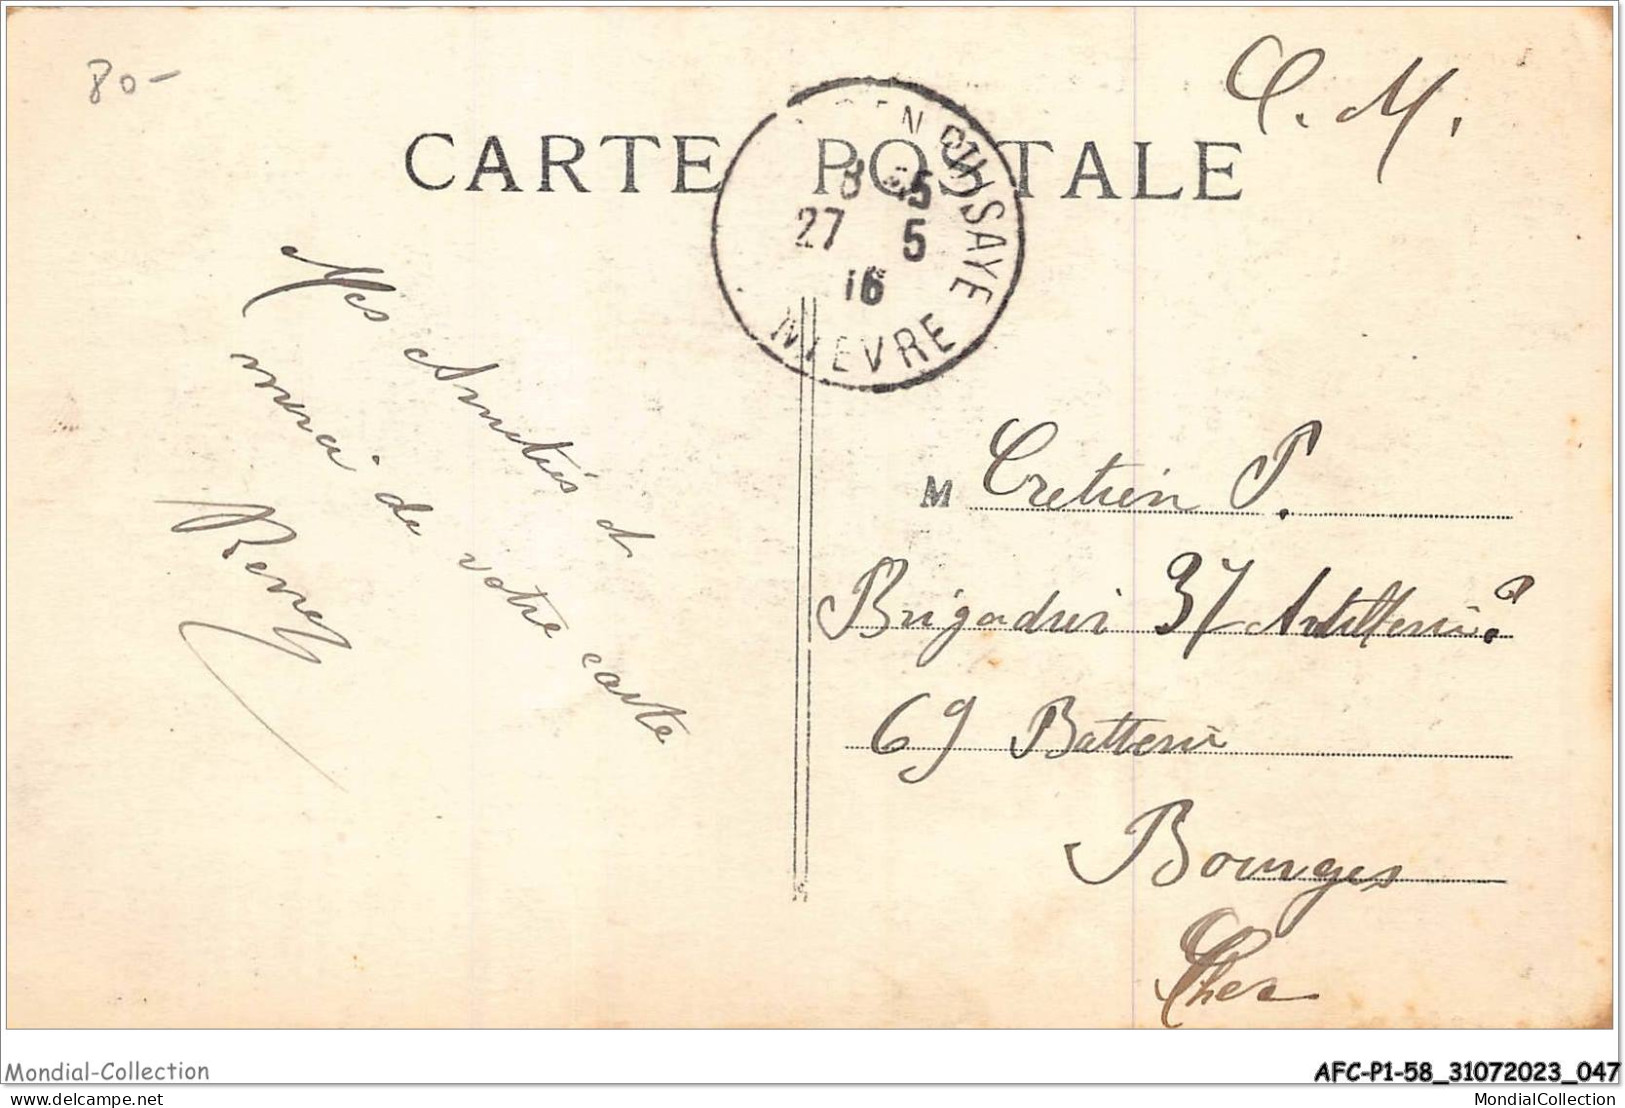 80-
C. M.
CARTE POSTALE
EN QUISAYE
8 45
27 5
16
NIEVRE
Mes Amitiés et
merci de votre carte
M Cretien P.
Brigadier 37 Artillerie
69 Batterie
Bourges
Cher
Mondial-Collection
AFC-P1-58_31072023_047
delcampe.net
MondialCollection